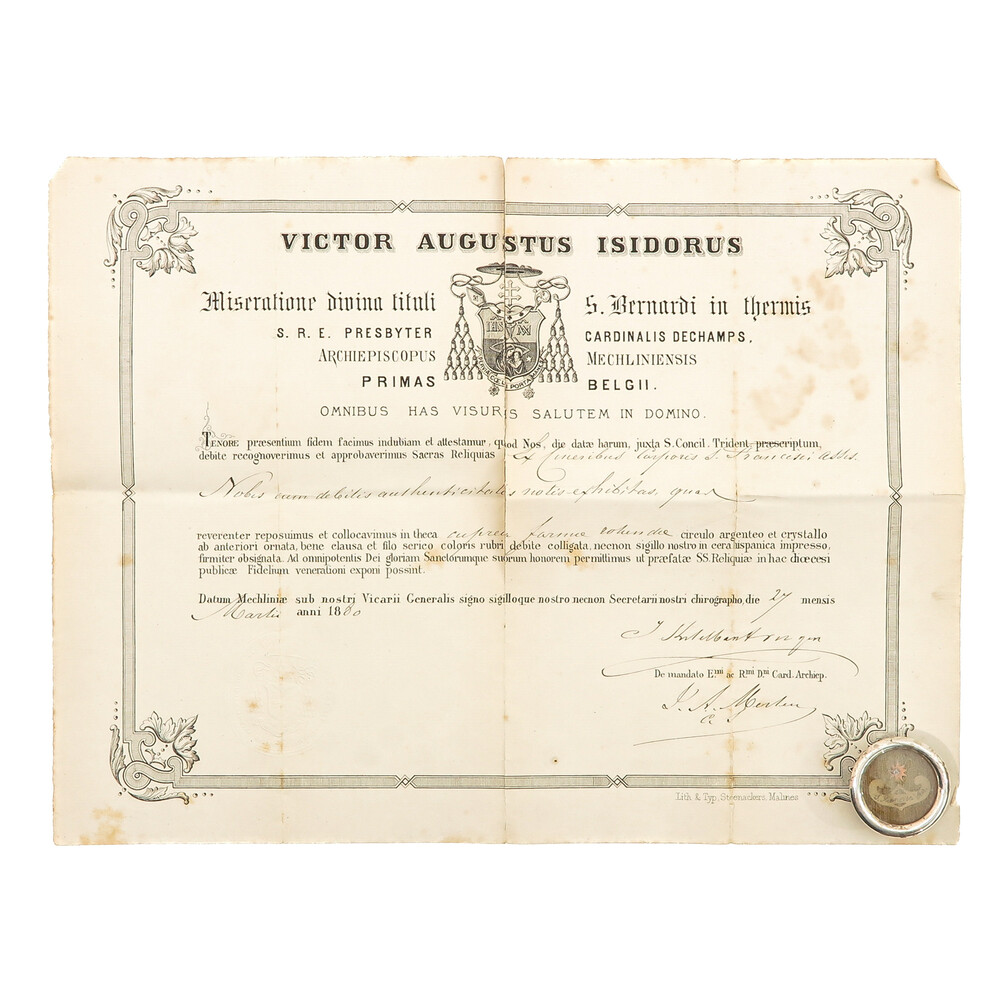 VICTOR AUGUSTUS ISIDORUS
Miseratione divina tituli S. Bernardi in thermis
S. R. E. PRESBYTER CARDINALIS DECHAMPS,
ARCHIEPISCOPUS MECHLINIENSIS
PRIMAS BELGII.
OMNIBUS HAS VISURIS SALUTEM IN DOMINO.
TENORE præsentium fidem facimus indubiam et attestamur, quod Nos, die datæ harum, juxta S. Concil. Trident. præscriptum,
debite recognoverimus et approbaverimus Sacras Reliquias Ex Cineribus corporis S. Francisci Assis.
Nobis cum debitis authenticitatis notis exhibitas, quas
reverenter reposuimus et collocavimus in theca cuprea formæ rotundæ circulo argenteo et crystallo
ab anteriori ornata, bene clausa et filo serico coloris rubri debite colligata, necnon sigillo nostro in cera hispanica impresso,
firmiter obsignata. Ad omnipotentis Dei gloriam Sanctorumque suorum honorem permittimus ut præfatæ SS. Reliquiæ in hac diœcesi
publicæ Fidelium venerationi exponi possint.
Datum Mechliniæ sub nostri Vicarii Generalis signo sigilloque nostro necnon Secretarii nostri chirographo, die 27 mensis
Martii anni 1880
De mandato E.mi ac R.mi D.ni Card. Archiep.
Lith & Typ. Steenackers. Malines